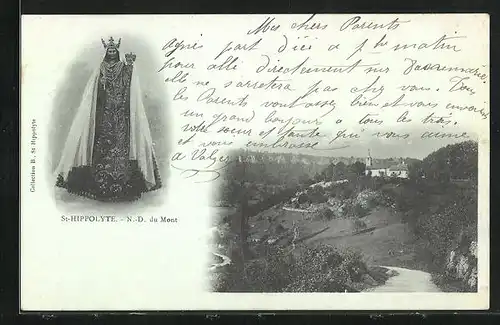 Mes chers Parents
Après part d'ici a
matin
pour allé directement sur
elle ne s'arretera pas chez vous. Tous
les Parents vont assez bien et vous envoies
un grand bonjour a tous les trois
votre soeur et tante qui vous aime
et vous embrasse
Collection B., St Hippolyte
St-HIPPOLYTE. - N.-D. du Mont